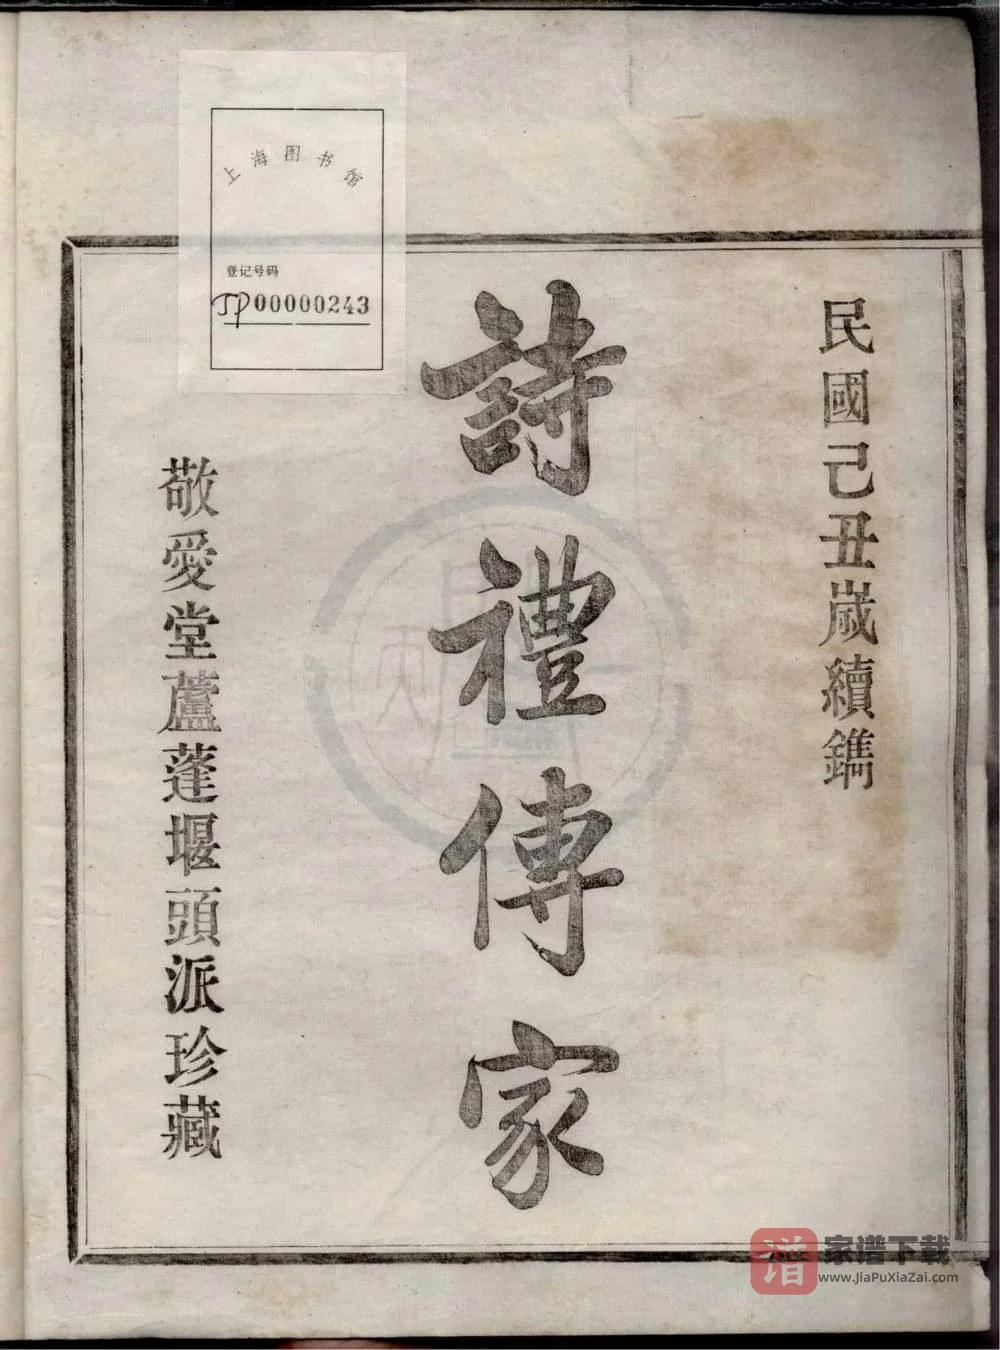 民國己丑嵗續鐫
詩禮傳家
敬愛堂蘆蓬堰頭派珍藏
上海图书馆
登记号码
JP00000243
谱
家谱下载
www.JiaPuXiaZai.com